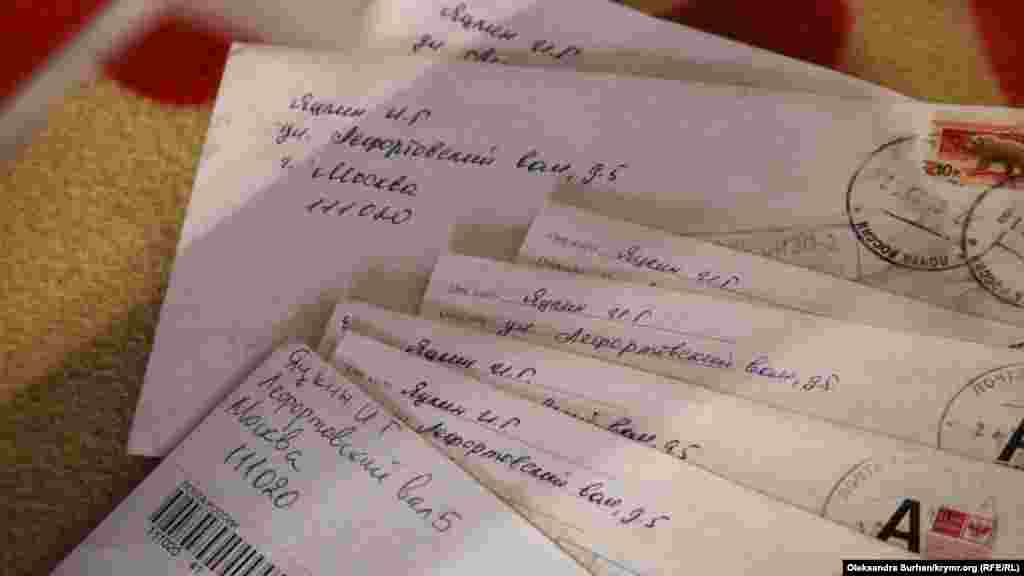 Яцкин И.Г
ул. Ле
Яцкин И.Г
ул. Лефортовский вал, д.5
г. Москва
111020
10
ПОЧТА
Яцкин И.Г
Яцкин И.Г
ул. Лефортовский вал, д.5
Яцкин И.Г.
вал, д.5
Яцкин И.Г
Лефортовский вал, д.5
Яцкин И Г
Лефортовский вал 5
Москва
111020
ПОЧТА
А
ПОЧТА
А
Oleksandra Burhen/krymr.org (RFE/RL)